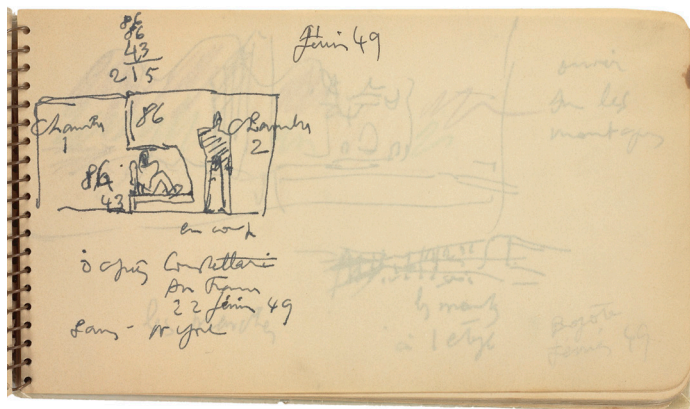 86
86
43
215
février 49
Chambre
1
86
Chambre
2
86
43
en coupe
d'après Constellation
Air France
22 février 49
Paris - N York
ouvrir
sur les
montagnes
Bogota
février 49